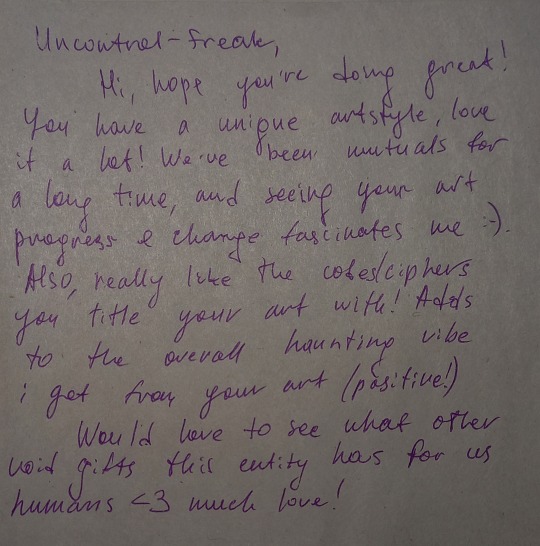 Uncontrol-freak,
Hi, hope you're doing great!
You have a unique artstyle, love
it a lot! We've been mutuals for
a long time, and seeing your art
progress & change fascinates me :-).
Also, really like the codes/ciphers
you title your art with! Adds
to the overall haunting vibe
i get from your art (positive!)
Would love to see what other
void gifts this entity has for us
humans <3 much love!